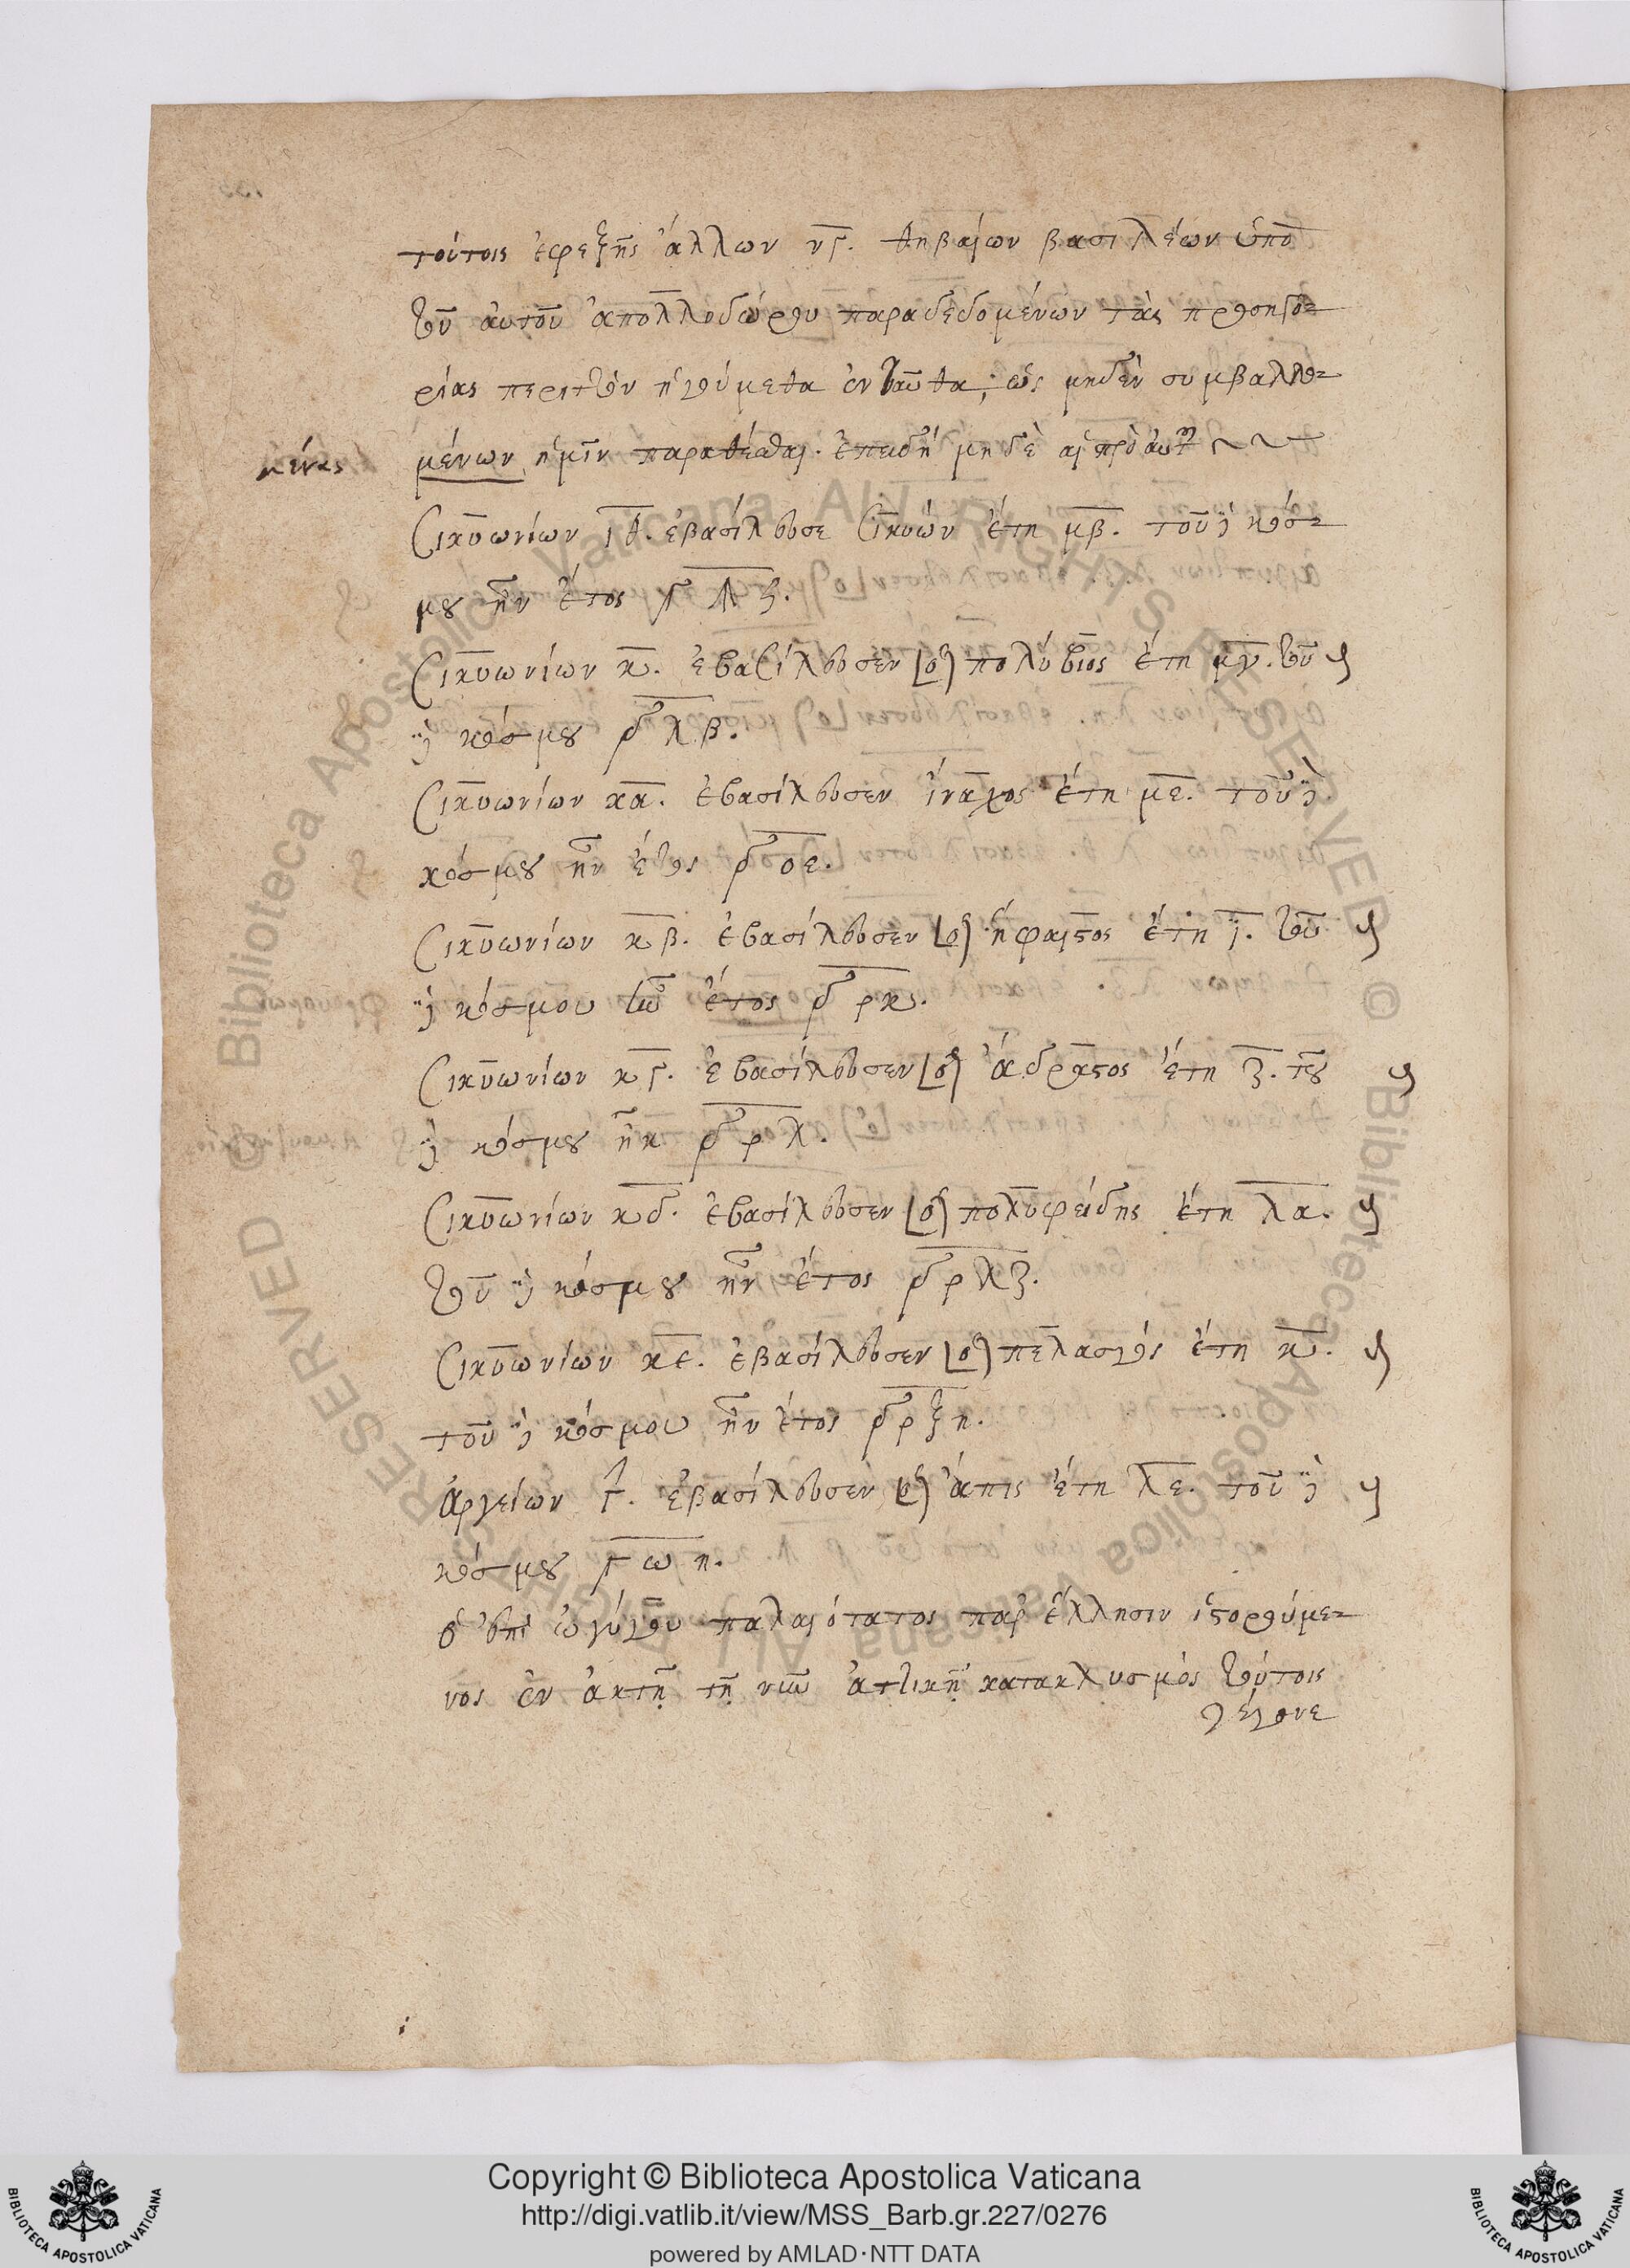 τούτοις ἐφεξῆς ἄλλων νγ. θηβαίων βασιλέων ὑπὸ
τοῦ αὐτοῦ ἀπολλοδώρου παραδεδομένων τὰς προσηγο-
ρίας περιττὸν ἡγούμεθα ἐνταῦθα, ὡς μηδὲν συμβαλλο-
μένας
μένων ἡμῖν παραθέσθαι. ἐπειδὴ μηδὲ αἱ πρὸ αὐτῶν
Σικυωνίων ιθ. ἐβασίλευσε Σικυών ἔτη μβ. τοῦ κόσ-
μου ἦν ἔτος
Σικυωνίων κ. ἐβασίλευσεν πολύβιος ἔτη μγ. τοῦ
κόσμου δλβ.
Σικυωνίων κα. ἐβασίλευσεν ἴναχος ἔτη με. τοῦ
κόσμου ἦν ἔτος δοε.
Σικυωνίων κβ. ἐβασίλευσεν ἥφαιστος ἔτη ι. τοῦ
κόσμου ἦν ἔτος δρκ.
Σικυωνίων κγ. ἐβασίλευσεν ἄδραστος ἔτη ζ. τοῦ
κόσμου ἦν δρλ.
Σικυωνίων κδ. ἐβασίλευσεν πολυφείδης ἔτη λα.
τοῦ κόσμου ἦν ἔτος δρλζ.
Σικυωνίων κε. ἐβασίλευσεν πελασγός ἔτη κ.
τοῦ κόσμου ἦν ἔτος δρξη.
ἀργείων γ. ἐβασίλευσεν ἄπις ἔτη λε. τοῦ
κόσμου γωη.
ὁ ἐπὶ ὠγύγου παλαιότατος παρ' ἕλλησιν ἱστορούμε-
νος ἐν ἀκτῇ τῇ νῦν ἀττικῇ κατακλυσμὸς τούτοις
γέγονε
Copyright © Biblioteca Apostolica Vaticana
http://digi.vatlib.it/view/MSS_Barb.gr.227/0276
powered by AMLAD·NTT DATA
BIBLIOTECA APOSTOLICA VATICANA
BIBLIOTECA APOSTOLICA VATICANA